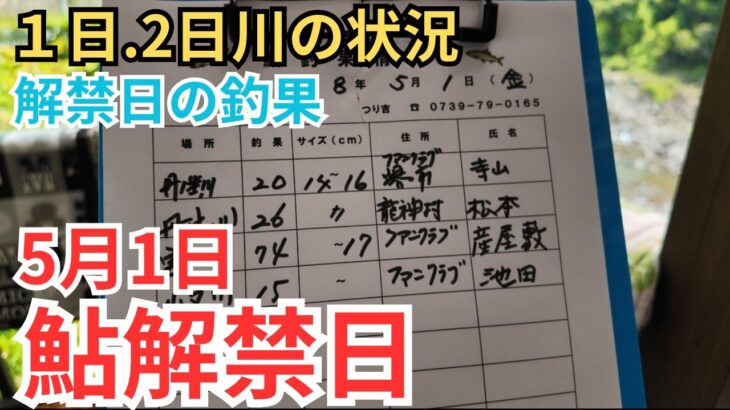 １日.2日川の状況
解禁日の釣果
8年 5月 1日（金）
つり吉 ☎ 0739-79-0165
場所 釣果 サイズ(cm) 住所 氏名
丹生川 20 14~16 ファンクラブ 堺市 寺山
26 〃 龍神村 松本
74 ~17 ファンクラブ 産屋敷
15 ~ ファンクラブ 池田
5月1日
鮎解禁日